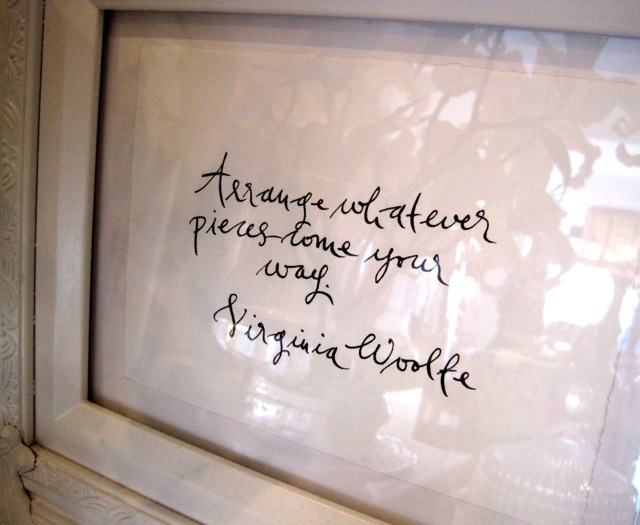 Arrange whatever
pieces come your
way.
Virginia Woolfe